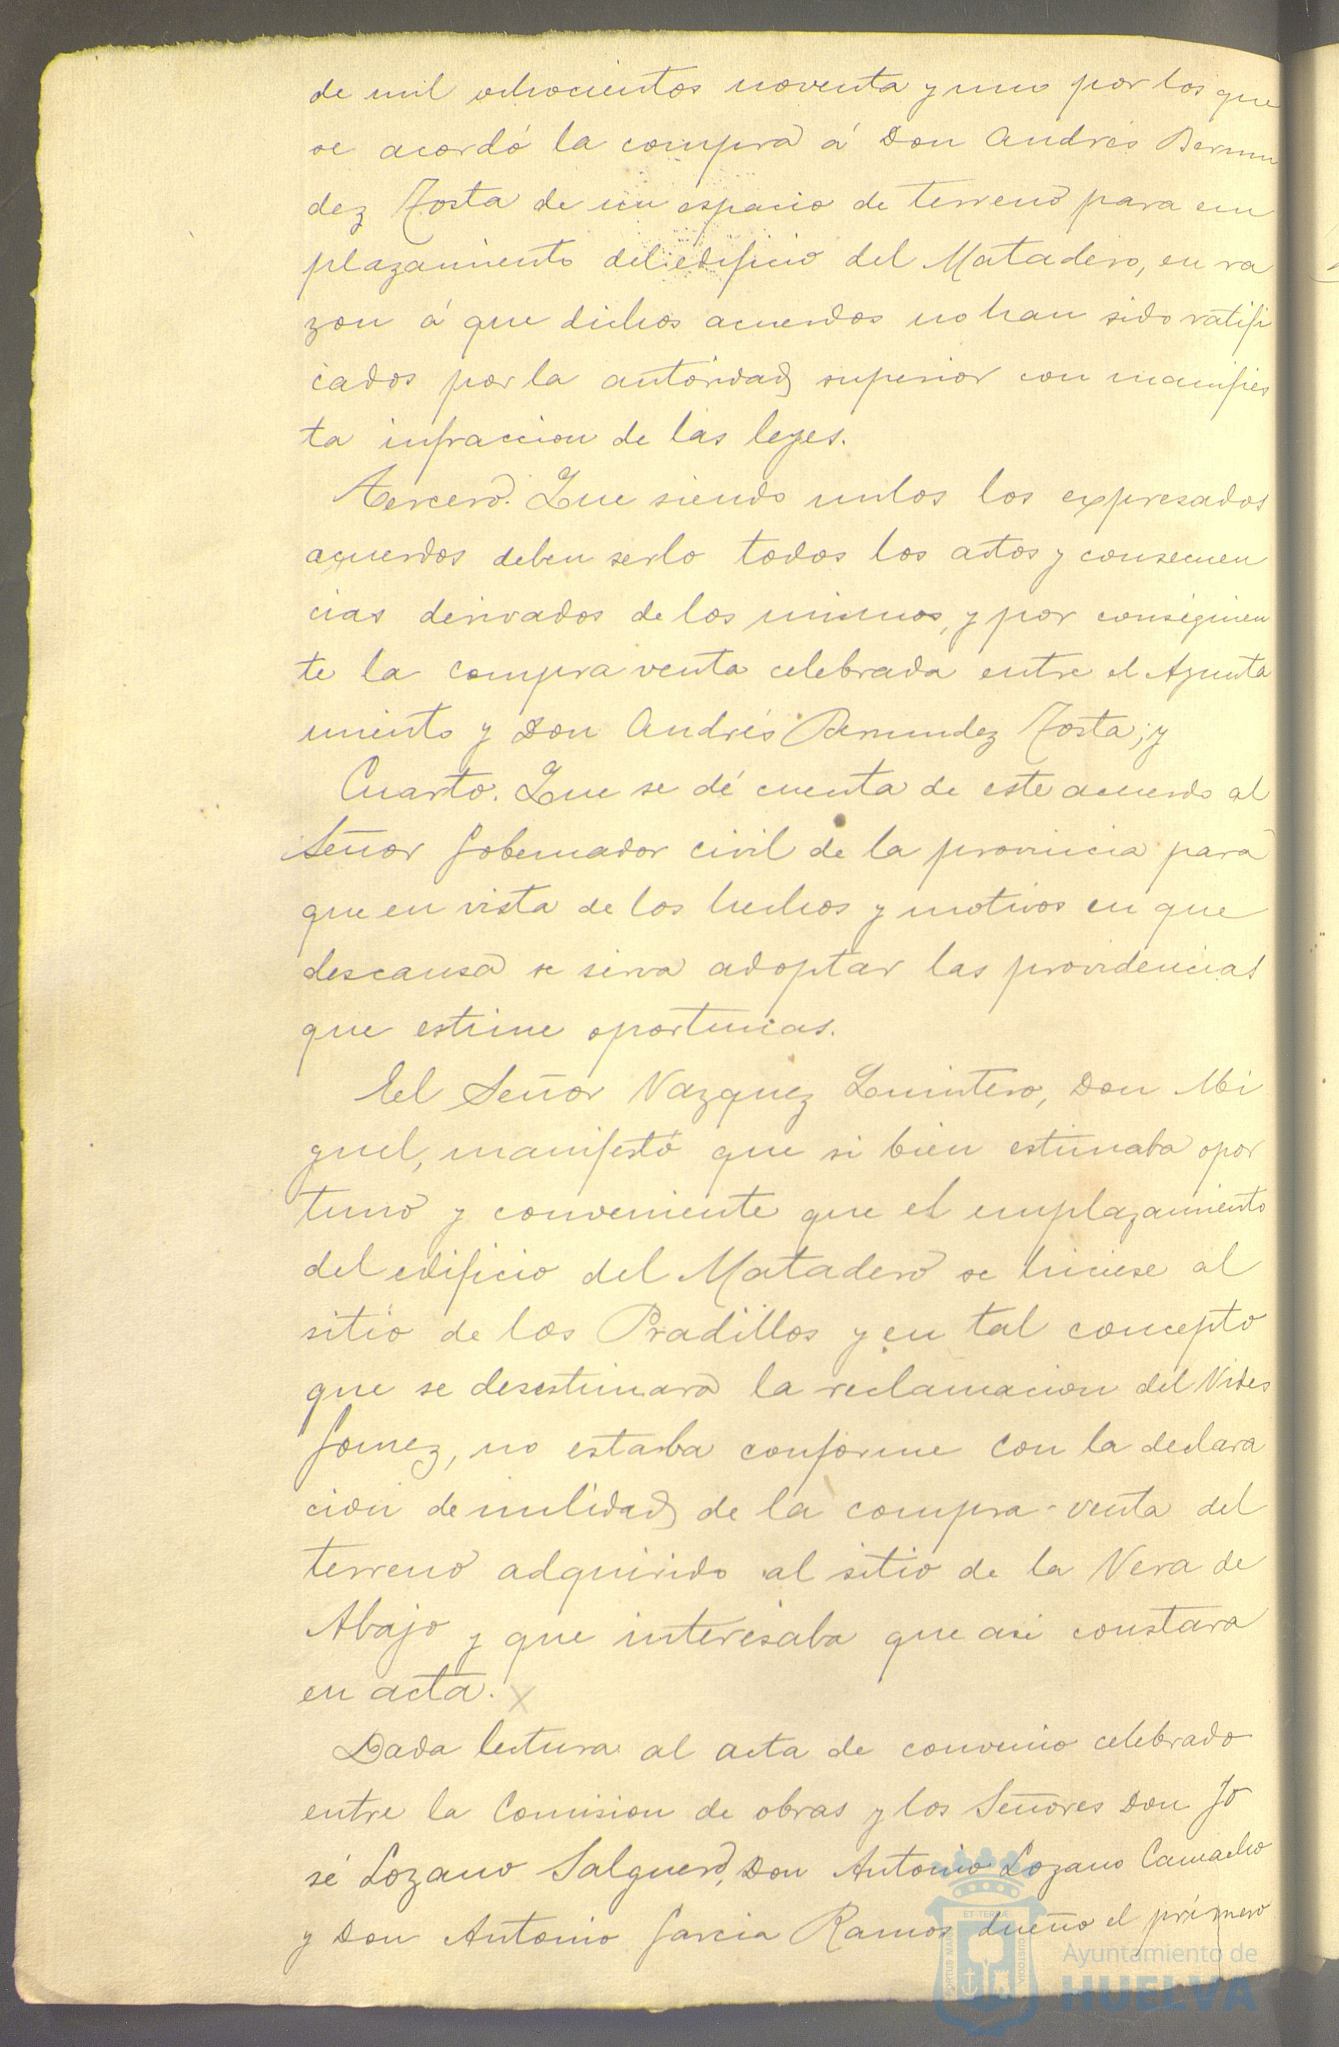 de mil ochocientos noventa y uno por los que
se acordó la compra á Don Andrés Bermu
dez Tosta de un espacio de terreno para em
plazamiento del edificio del Matadero, en ra
zon á que dichos acuerdos no han sido ratifi
cados por la autoridad superior con manifies
ta infraccion de las leyes.
Tercero. Que siendo nulos los expresados
acuerdos deben serlo todos los actos y consecuen
cias derivados de los mismos, y por consiguien
te la compra venta celebrada entre el Ayunta
miento y Don Andrés Bermudez Tosta; y
Cuarto. Que se dé cuenta de este acuerdo al
Señor Gobernador civil de la provincia para
que en vista de los hechos y motivos en que
descansa se sirva adoptar las providencias
que estime oportunas.
El Señor Vazquez Quintero, Don Mi
guel, manifestó que si bien estimaba opor
tuno y conveniente que el emplazamiento
del edificio del Matadero se hiciese al
sitio de los Pradillos y en tal concepto
que se desestimara la reclamacion del Vides
Gomez, no estaba conforme con la declara
cion de nulidad de la compra-venta del
terreno adquirido al sitio de la Vera de
Abajo y que interesaba que asi constara
en acta. X
Dada lectura al acta de convenio celebrado
entre la Comision de obras y los Señores Don Jo
sé Lozano Salguero, Don Antonio Lozano Camacho
y Don Antonio Garcia Ramos dueño el primero
Ayuntamiento de
HUELVA